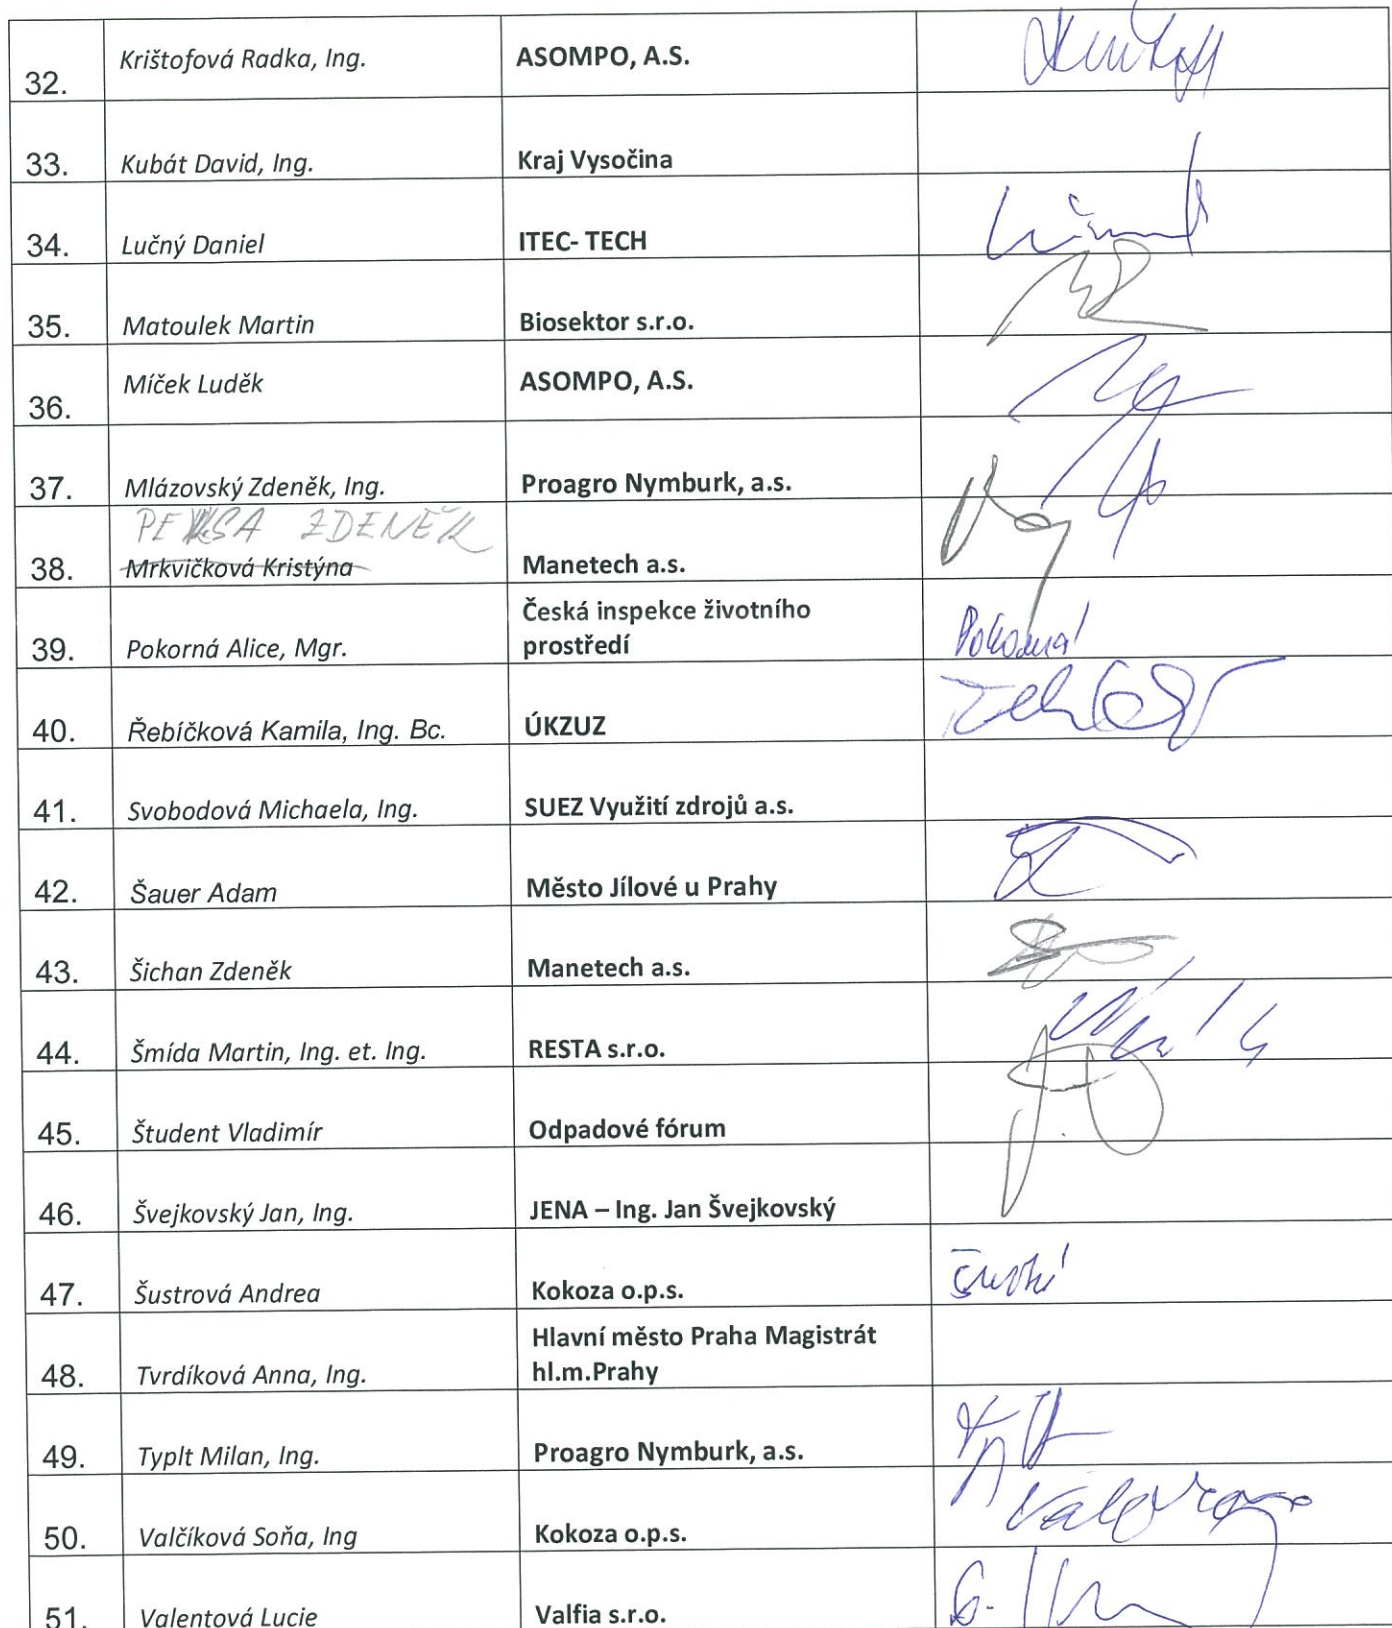 32. Krištofová Radka, Ing. ASOMPO, A.S.
33. Kubát David, Ing. Kraj Vysočina
34. Lučný Daniel ITEC- TECH
35. Matoulek Martin Biosektor s.r.o.
36. Míček Luděk ASOMPO, A.S.
37. Mlázovský Zdeněk, Ing. Proagro Nymburk, a.s.
ZDENĚK
38. Mrkvičková Kristýna Manetech a.s.
Česká inspekce životního
39. Pokorná Alice, Mgr. prostředí Pokorná
40. Řebíčková Kamila, Ing. Bc. ÚKZUZ
41. Svobodová Michaela, Ing. SUEZ Využití zdrojů a.s.
42. Šauer Adam Město Jílové u Prahy
43. Šichan Zdeněk Manetech a.s.
44. Šmída Martin, Ing. et. Ing. RESTA s.r.o.
45. Študent Vladimír Odpadové fórum
46. Švejkovský Jan, Ing. JENA – Ing. Jan Švejkovský
47. Šustrová Andrea Kokoza o.p.s.
Hlavní město Praha Magistrát
48. Tvrdíková Anna, Ing. hl.m.Prahy
49. Typlt Milan, Ing. Proagro Nymburk, a.s.
50. Valčíková Soňa, Ing Kokoza o.p.s.
51. Valentová Lucie Valfia s.r.o.